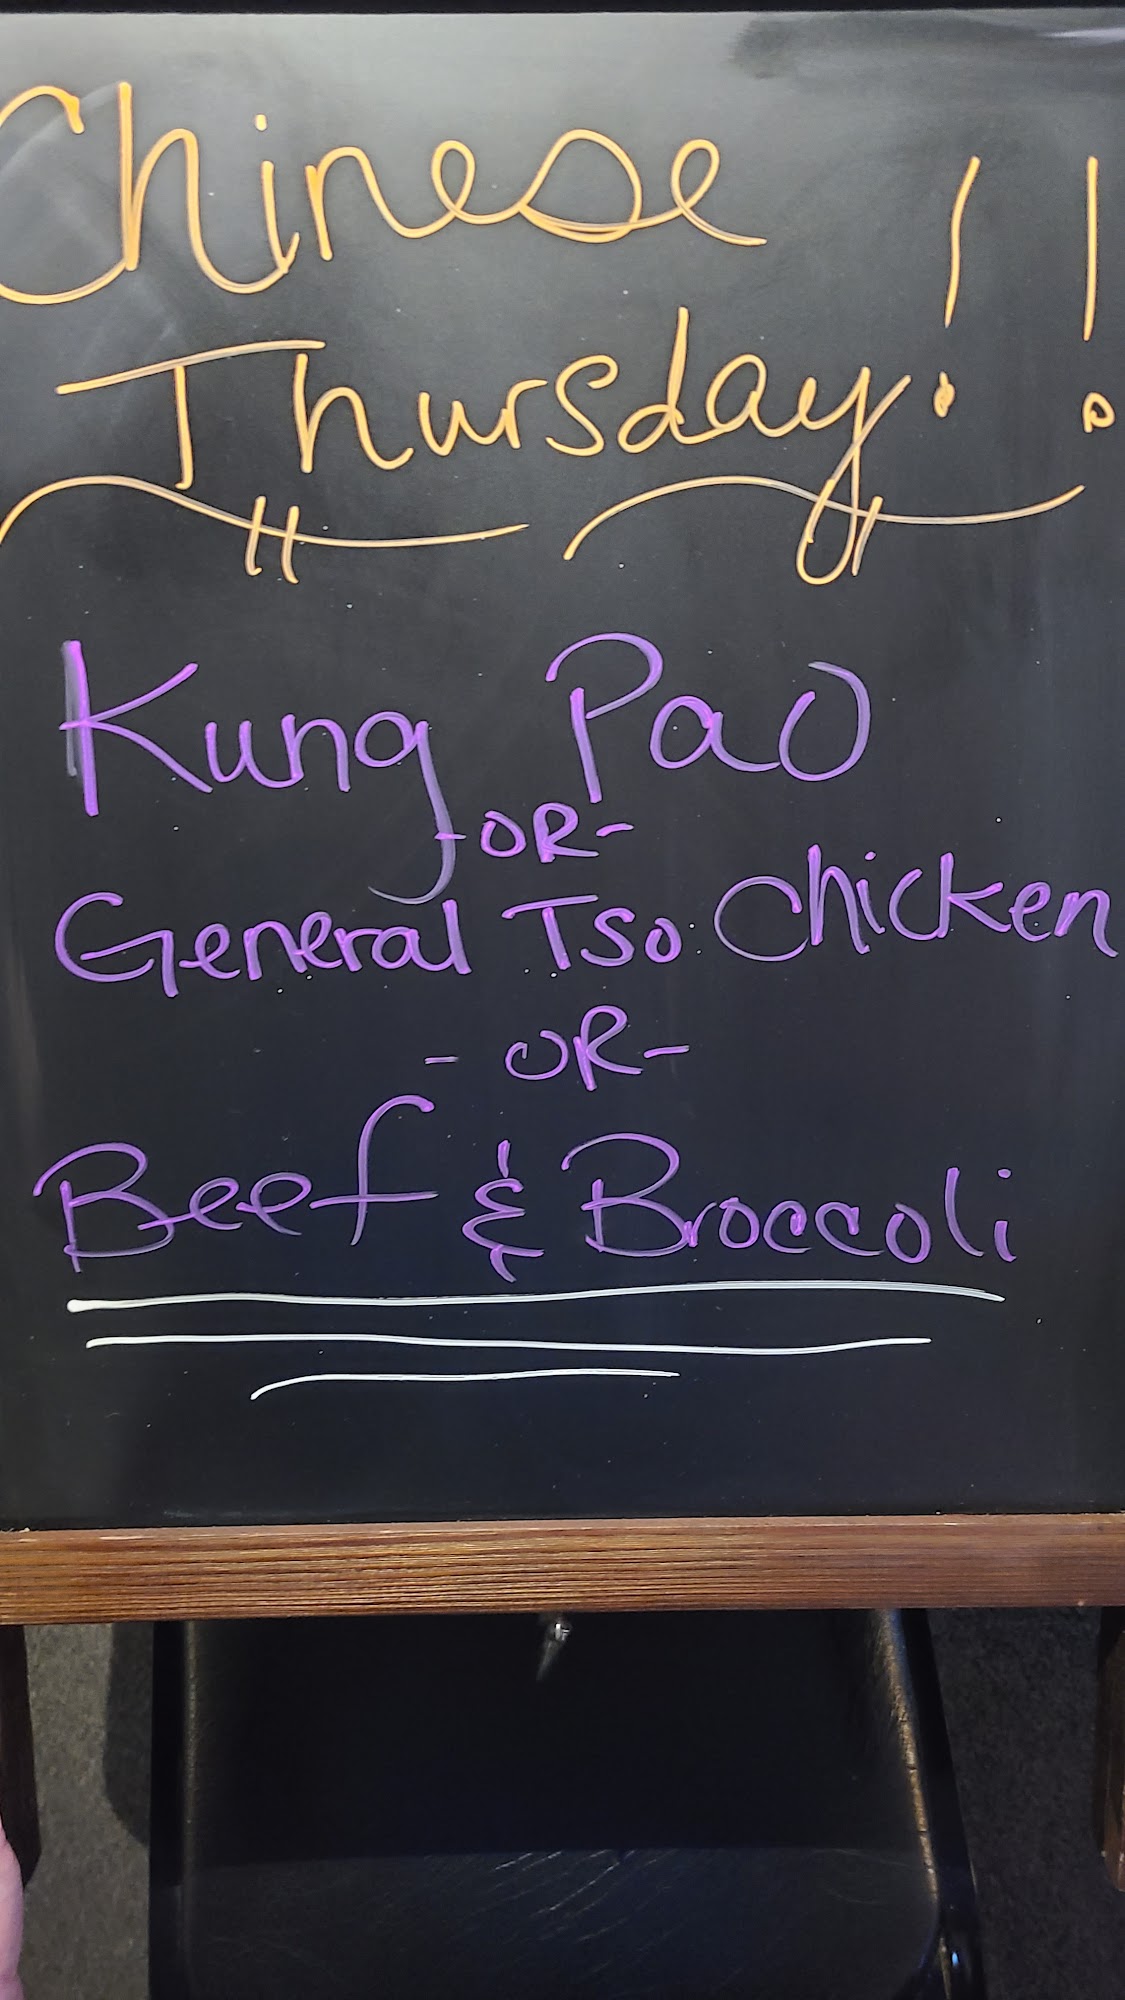 Chinese
Thursday!!
Kung Pao
-OR-
General Tso Chicken
- OR-
Beef & Broccoli